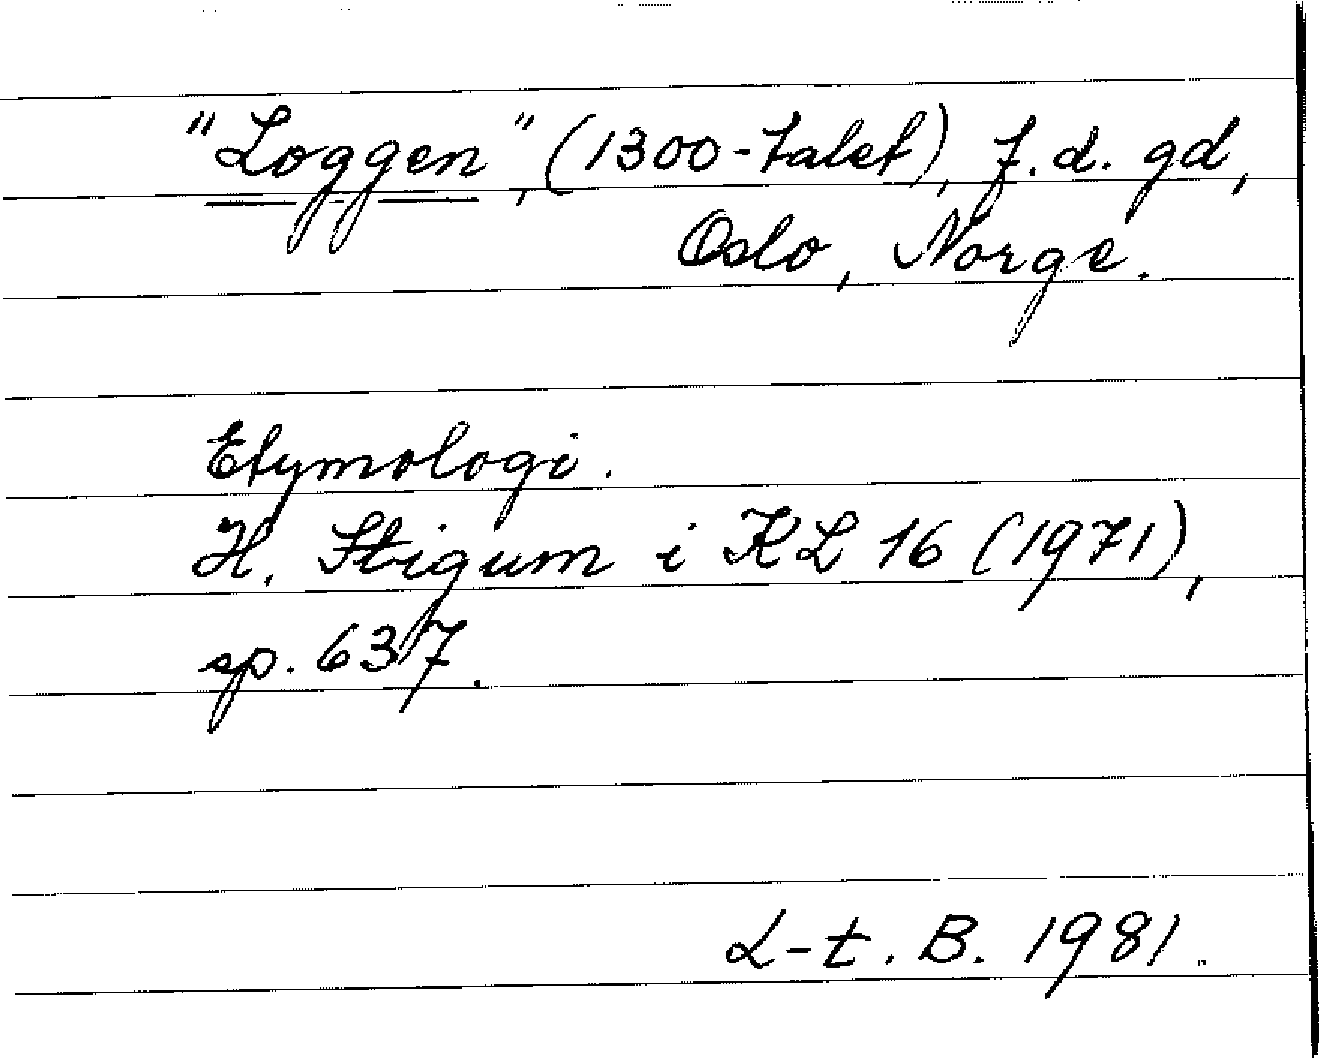 "Loggen", (1300-talet), f.d. gd,
Oslo, Norge.
Etymologi.
H. Stigum i KL 16 (1971),
sp. 637.
L-t. B. 1981.